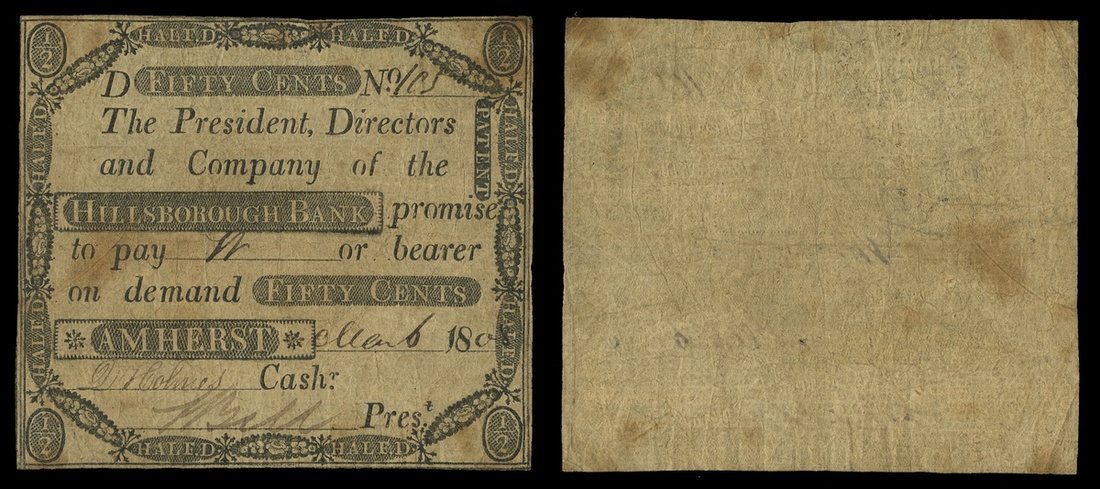 1/2 HALF D HALF D 1/2
D FIFTY CENTS No. 103
The President, Directors
and Company of the
HILLSBOROUGH BANK promise
to pay W or bearer
on demand FIFTY CENTS
AMHERST Mar 6 180
D Holmes Cashr.
Prest.
1/2 HALF D HALF D 1/2
HALF D
HALF D
HALF D
HALF D
PATENT